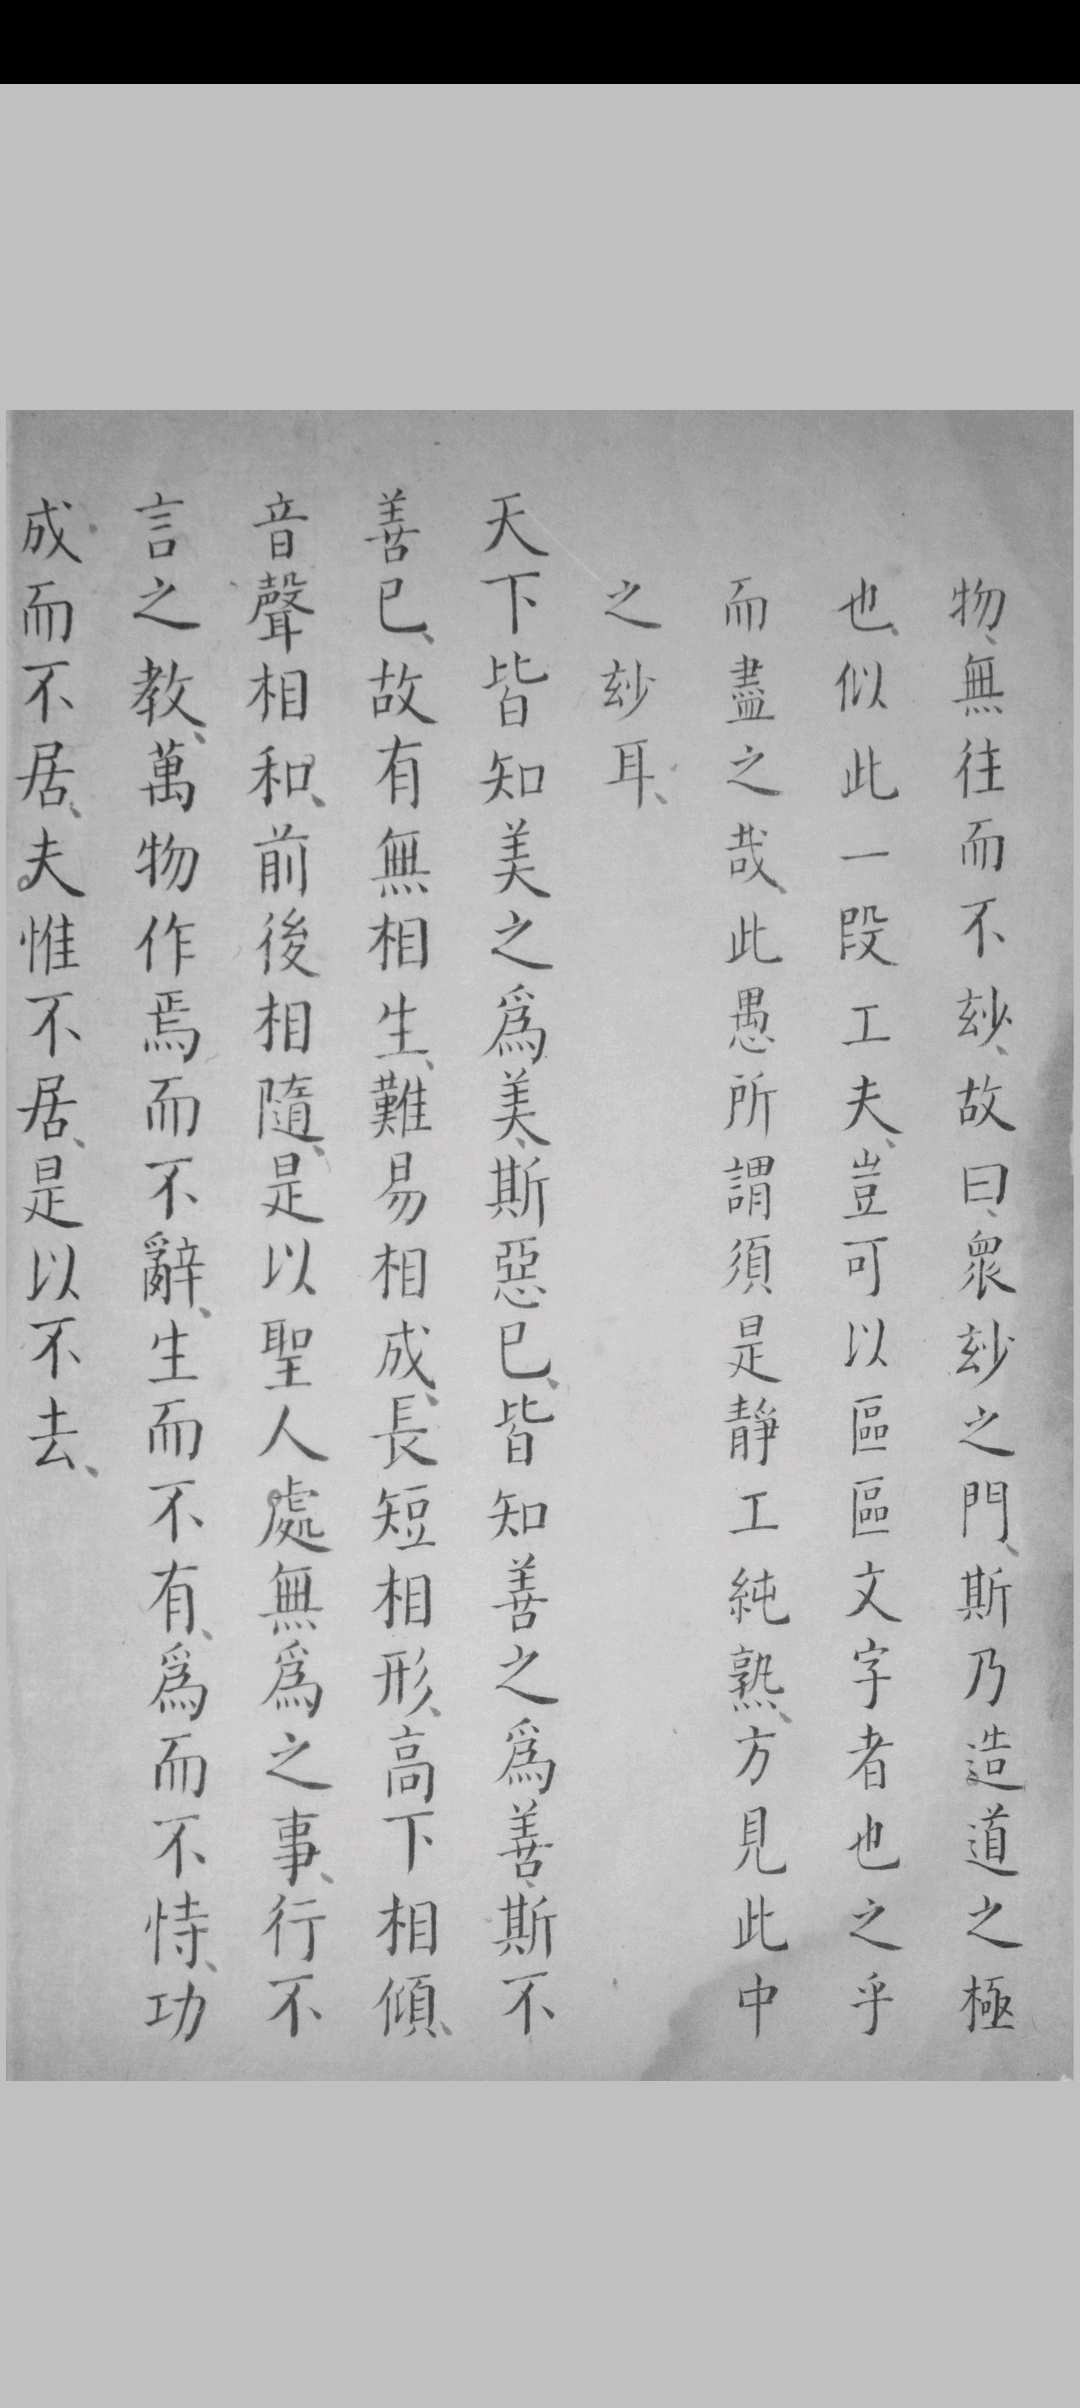 物、無往而不玅、故曰、衆玅之門、斯乃造道之極
也、似此一段工夫、豈可以區區文字者也之乎
而盡之哉、此愚所謂須是靜工純熟、方見此中
之玅耳、
天下皆知美之為美、斯惡已、皆知善之為善、斯不
善已、故有無相生、難易相成、長短相形、高下相傾、
音聲相和、前後相隨、是以聖人處無為之事、行不
言之教、萬物作焉而不辭、生而不有、為而不恃、功
成而不居、夫惟不居、是以不去、